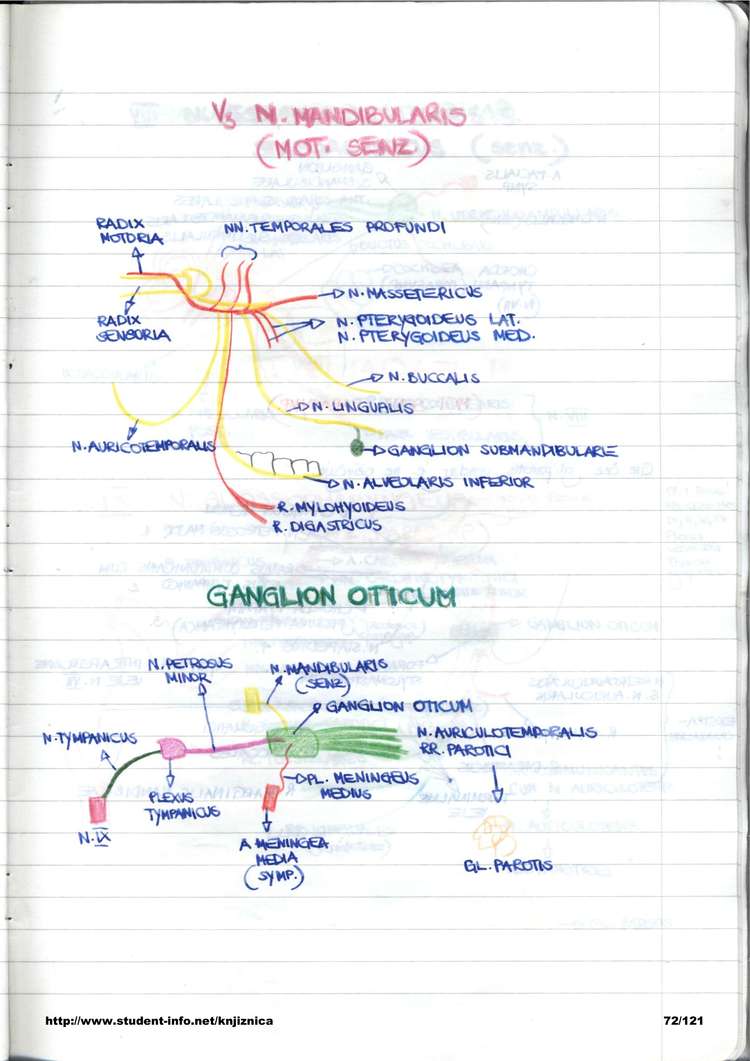 V3 N. MANDIBULARIS
(MOT. SENZ.)
RADIX
MOTORIA
NN. TEMPORALES PROFUNDI
N. MASSETERICUS
RADIX
SENSORIA
N. PTERYGOIDEUS LAT.
N. PTERYGOIDEUS MED.
N. BUCCALIS
N. LINGUALIS
N. AURICOTEMPORALIS
GANGLION SUBMANDIBULARE
N. ALVEOLARIS INFERIOR
R. MYLOHYOIDEUS
R. DIGASTRICUS
GANGLION OTICUM
N. PETROSUS
MINOR
N. MANDIBULARIS
(SENZ)
GANGLION OTICUM
N. TYMPANICUS
N. AURICULOTEMPORALIS
RR. PAROTICI
PL. MENINGEUS
MEDIUS
PLEXUS
TYMPANICUS
N. IX
A MENINGEA
MEDIA
(SYMP.)
GL. PAROTIS
http://www.student-info.net/knjiznica
72/121